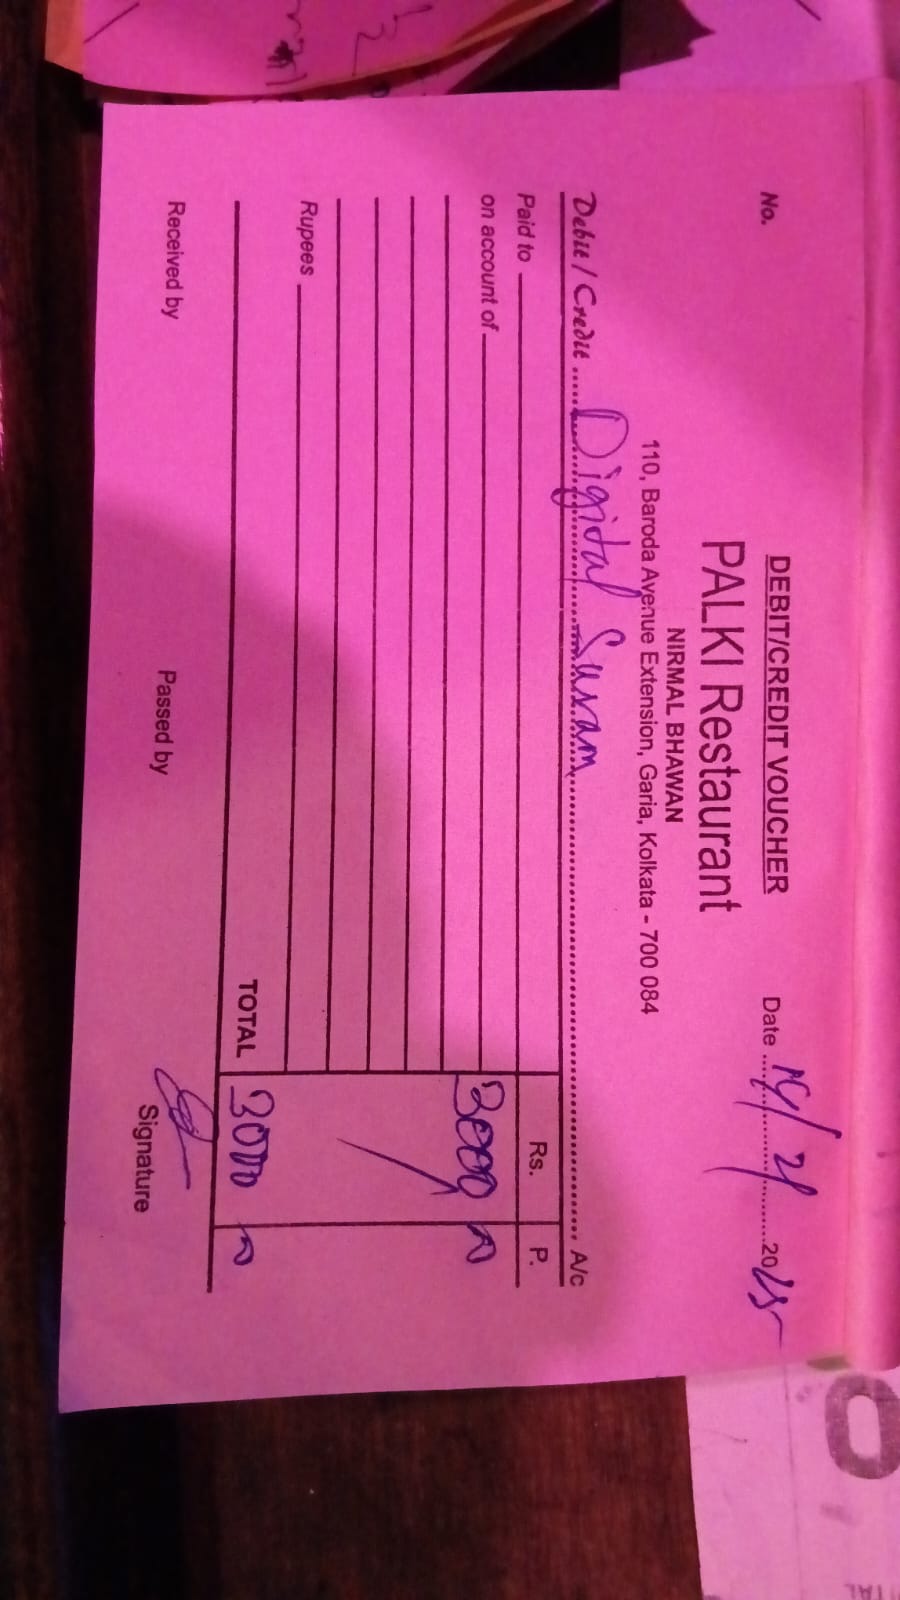 DEBIT/CREDIT VOUCHER
No.
Date ........................2025
PALKI Restaurant
NIRMAL BHAWAN
110, Baroda Avenue Extension, Garia, Kolkata - 700 084
Debit / Credit ..... Digital Suvam ..... A/c
Paid to
Rs. P.
on account of
3000
Rupees
TOTAL 3000
Received by Passed by Signature